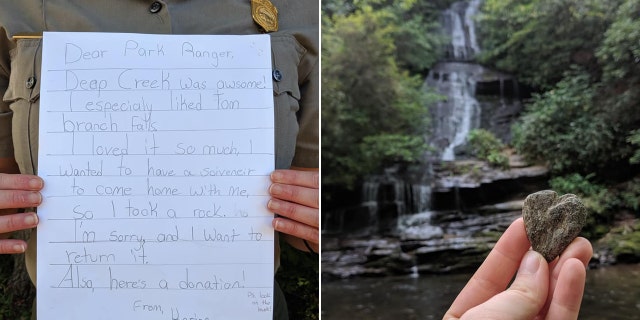 Dear Park Ranger,
Deap Creek was awsome!
I especialy liked tom
branch falls.
I loved it so much, I
wanted to have a soivencir
to come home with me,
so I took a rock.
I'm sorry, and I want to
return it.
Also, here's a donation!
From,
Ps. look
on the